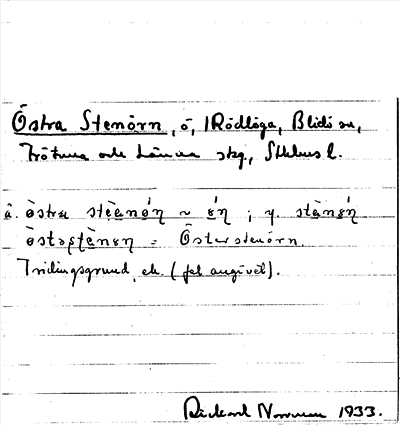 Östra Stenörn, ö, i Rödlöga, Blidö sn,
Frötuna och Länna skg., Sthlms l.
å. östra stèanǿn ~ ǿn ; y. stànǿn
östəʂtànøn = Österstenörn.
Tridingsgrund, ek. (fel angivet).
Rickard 1933.